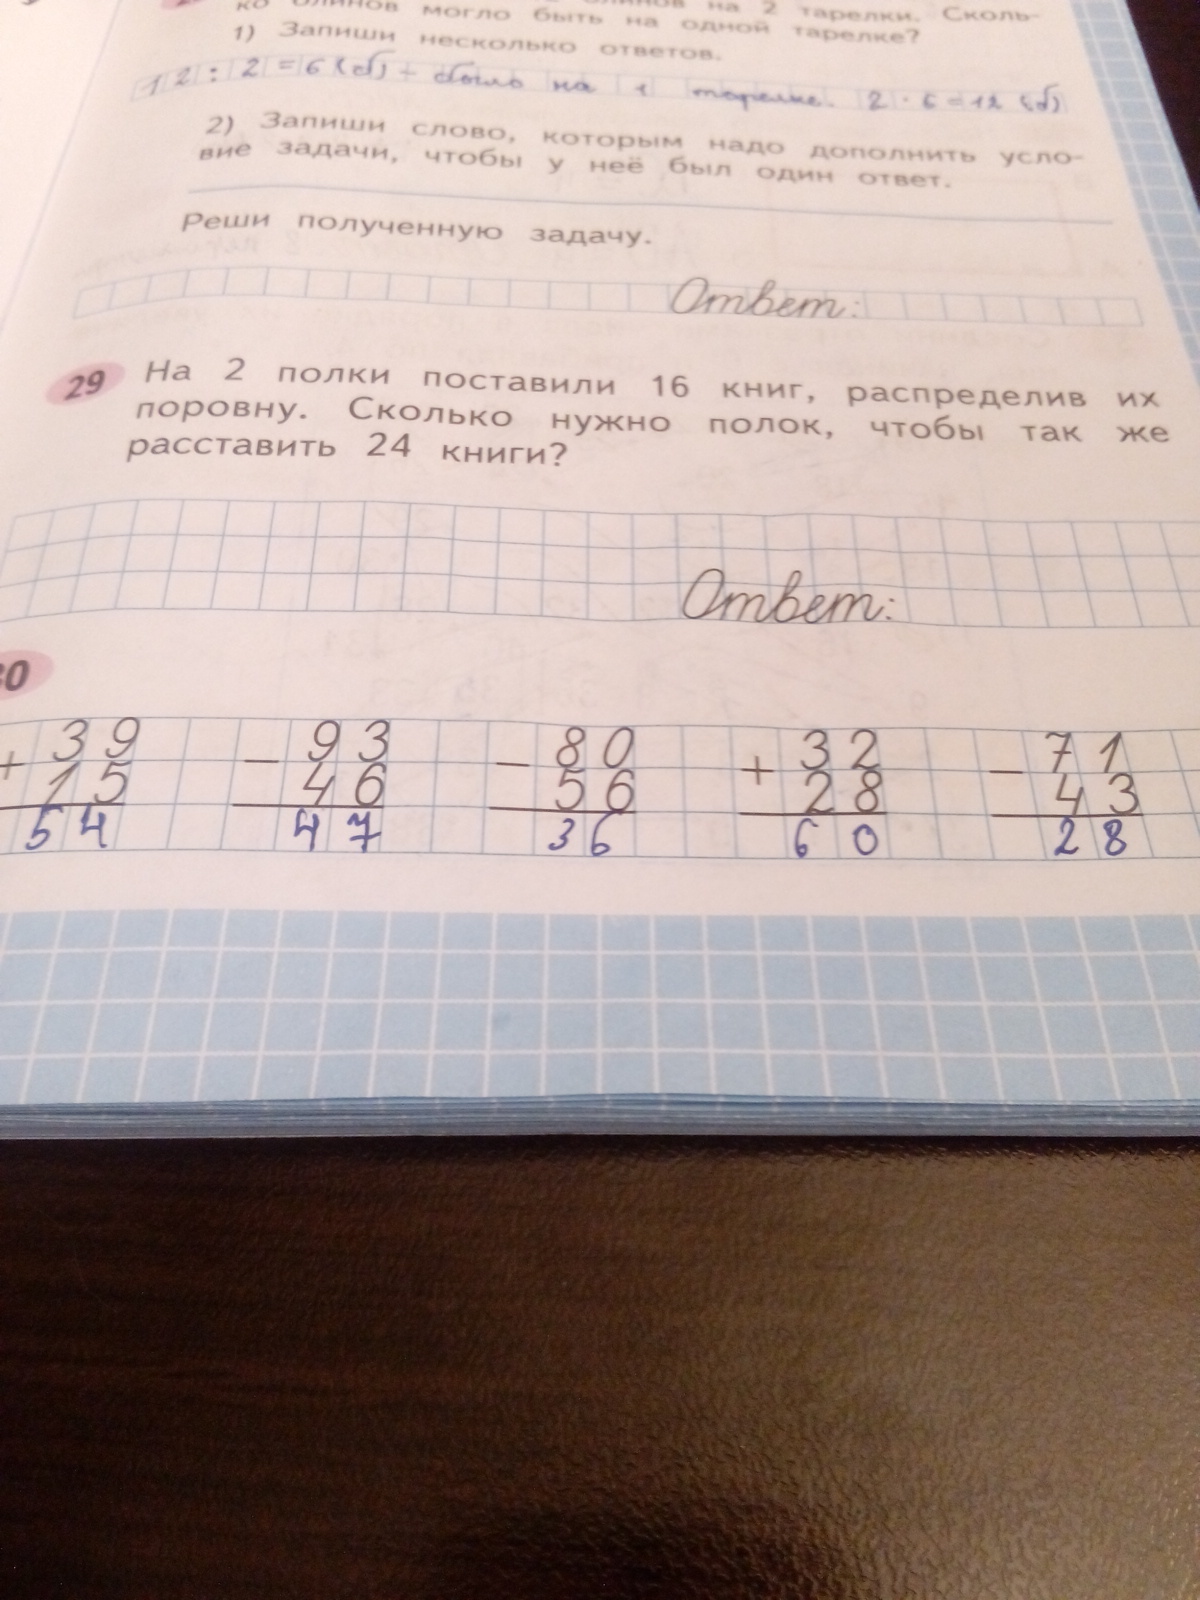 блинов на 2 тарелки. Сколь-
ко блинов могло быть на одной тарелке?
1) Запиши несколько ответов.
12 : 2 = 6 (б) – было на 1 тарелке. 2 · 6 = 12 (б)
2) Запиши слово, которым надо дополнить усло-
вие задачи, чтобы у неё был один ответ.
Реши полученную задачу.
Ответ:
29 На 2 полки поставили 16 книг, распределив их
поровну. Сколько нужно полок, чтобы так же
расставить 24 книги?
Ответ:
30
+ 39 – 93 – 80 + 32 – 71
15 46 56 28 43
54 47 36 60 28